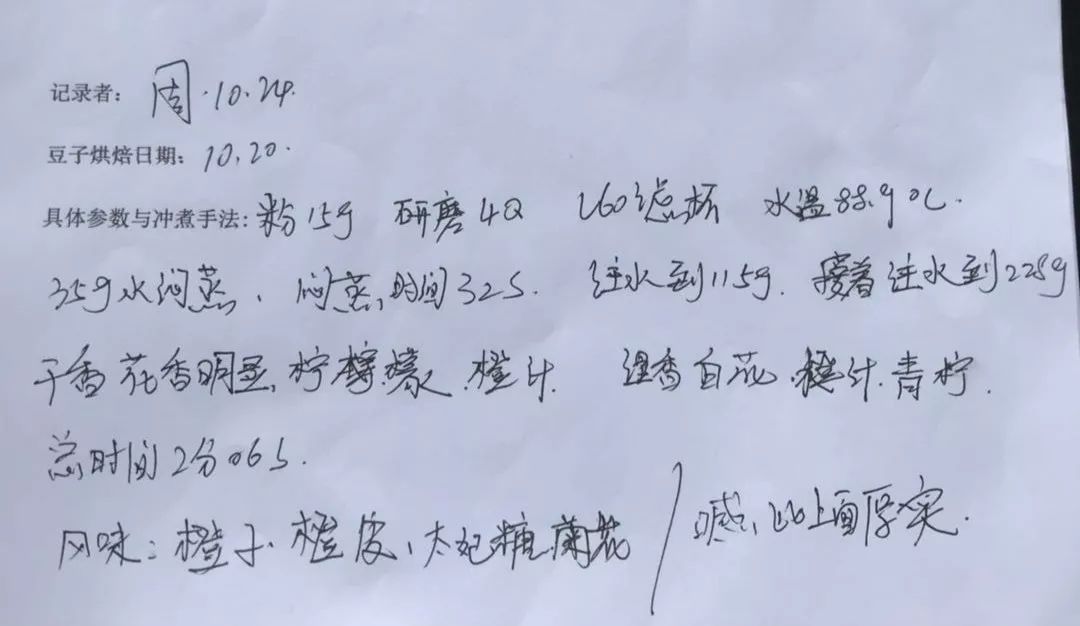 记录者: 周.10.24.
豆子烘焙日期: 10.20.
具体参数与冲煮手法: 粉15g 研磨4Q V60滤杯 水温88.9℃.
35g水闷蒸、闷蒸时间32S. 注水到115g. 接着注水到228g
干香 花香明显、柠檬、橙汁. 湿香白花.橙汁.青柠.
总时间2分06S.
风味: 橙子、橙皮、太妃糖、菊花 / 喊、比上面厚实.